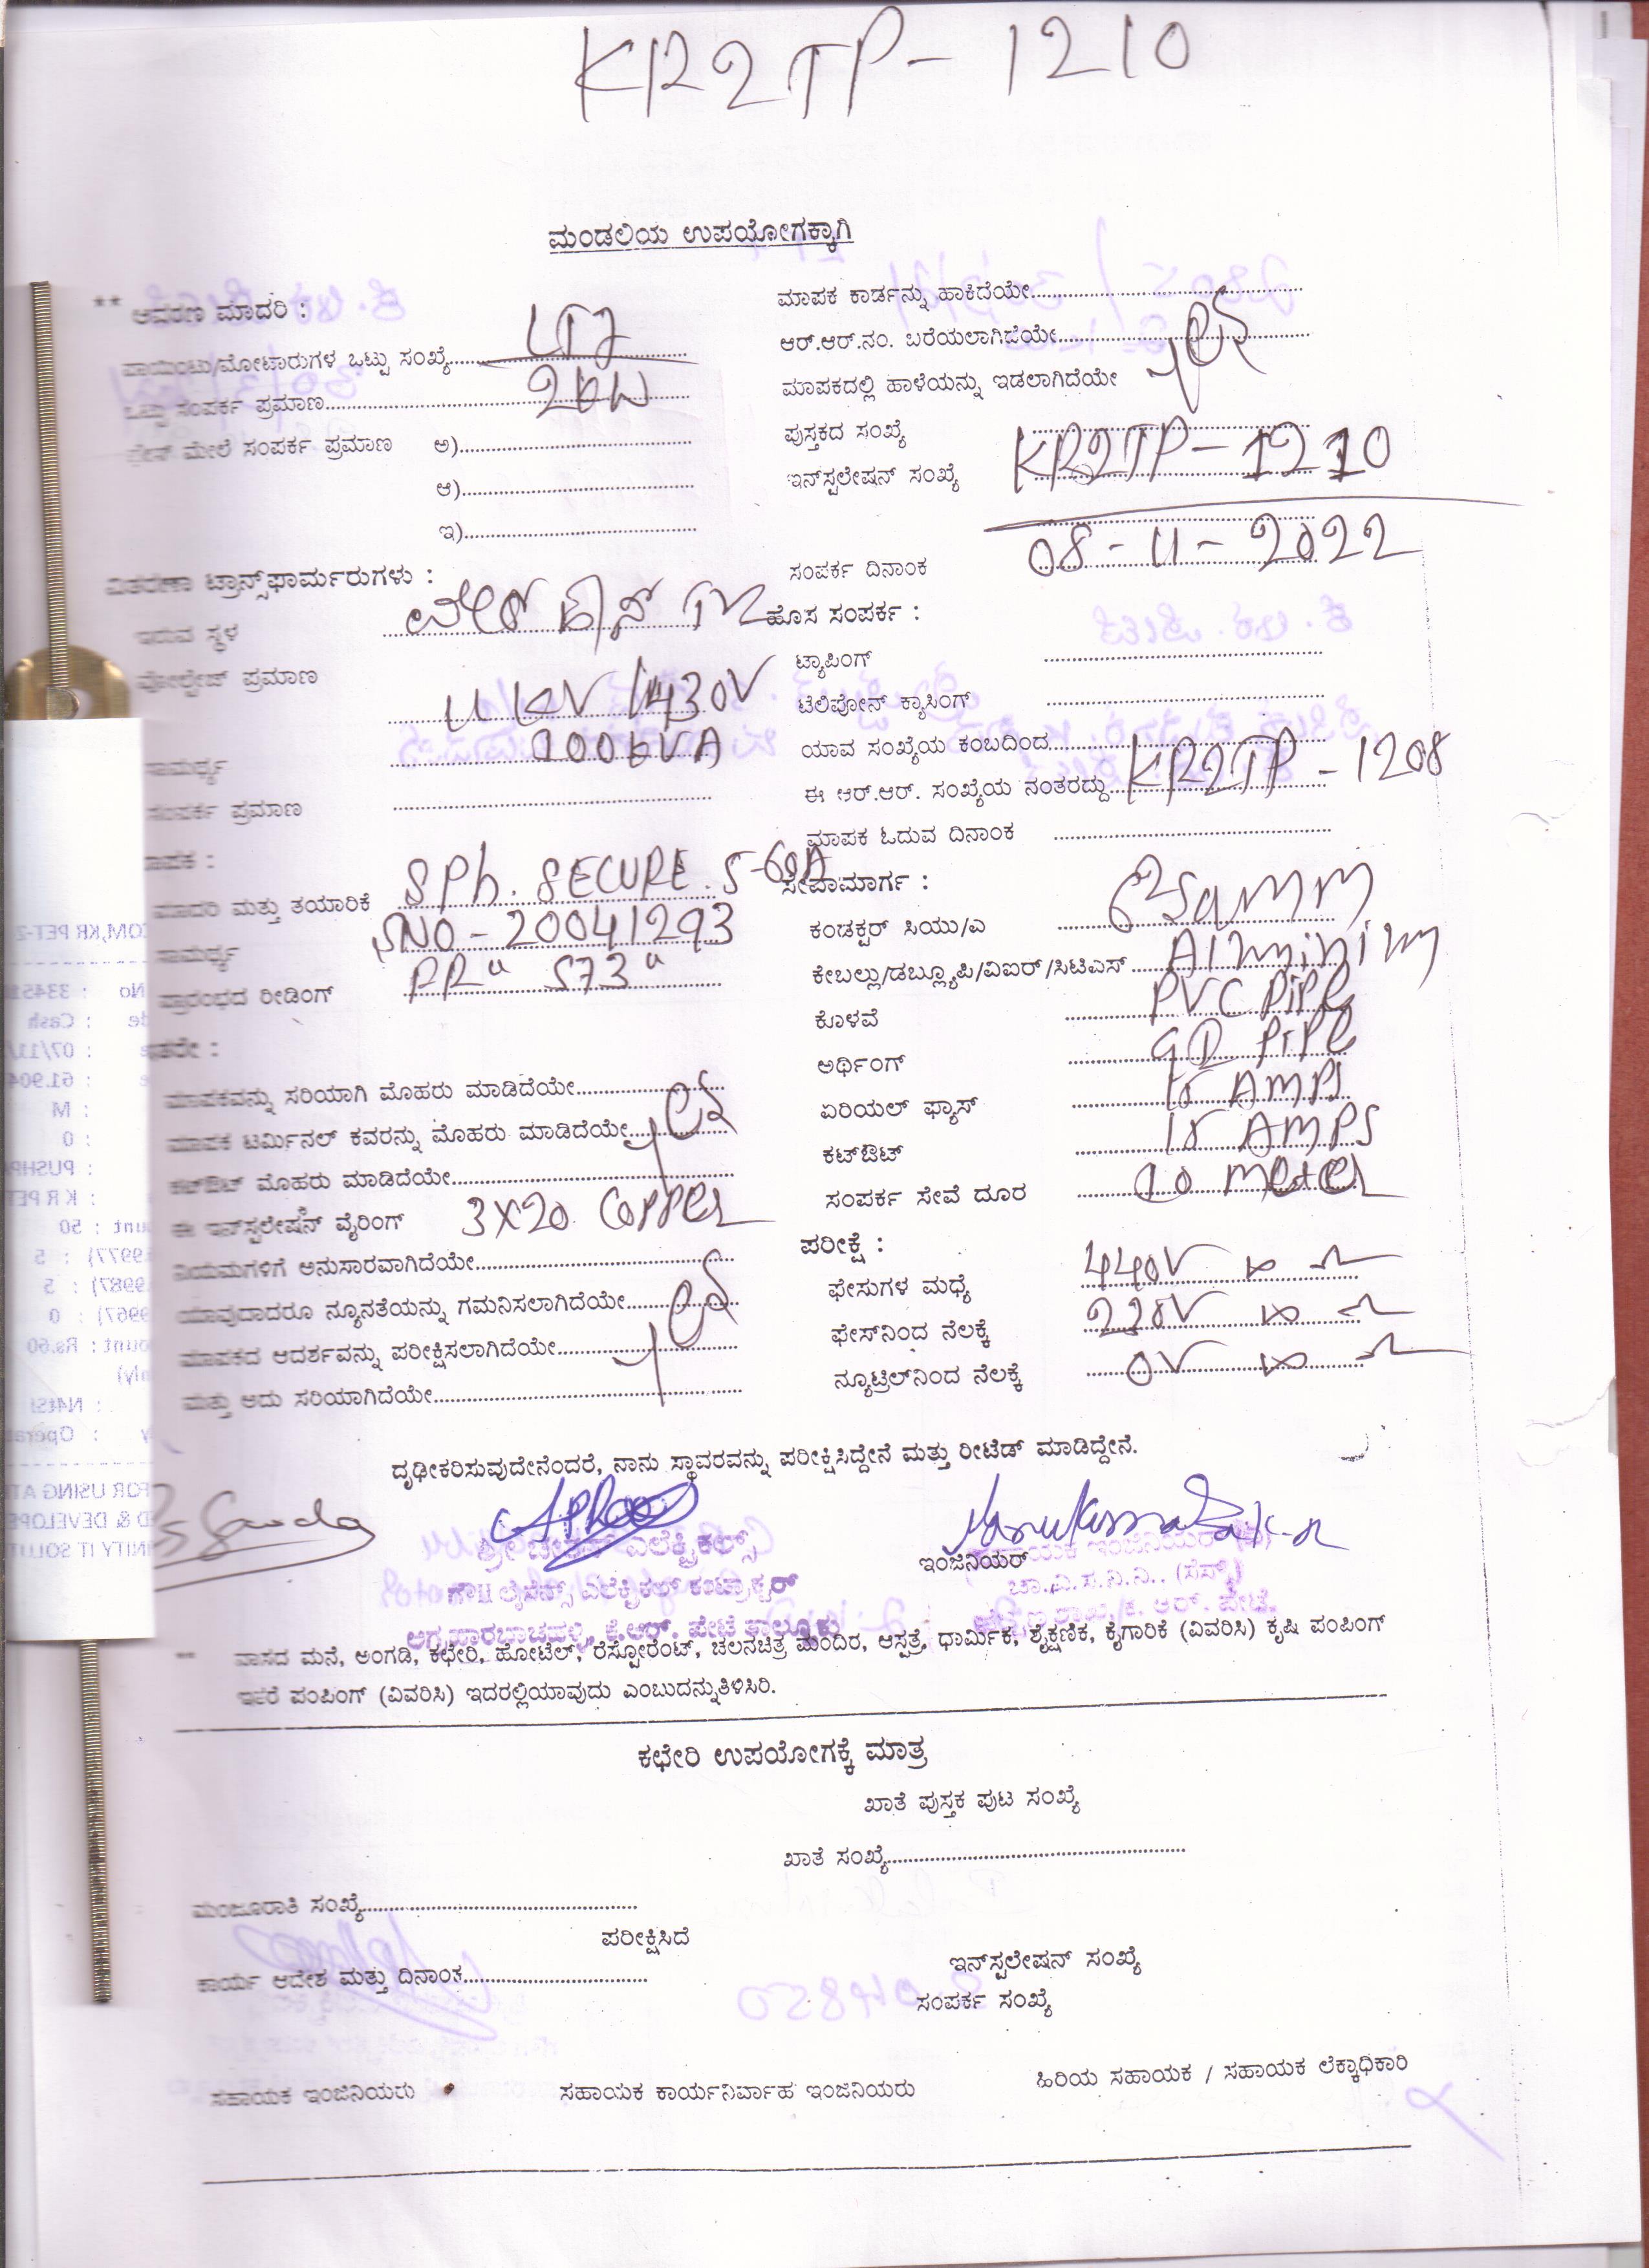 KR2TP-1210
ಮಂಡಲಿಯ ಉಪಯೋಗಕ್ಕಾಗಿ
** ಆವರಣ ಮಾದರಿ :
ಪಾಯಿಂಟು/ಮೋಟಾರುಗಳ ಒಟ್ಟು ಸಂಖ್ಯೆ
ಒಟ್ಟು ಸಂಪರ್ಕ ಪ್ರಮಾಣ 2kW
ಮೇಲೆ ಸಂಪರ್ಕ ಪ್ರಮಾಣ ಅ)
ಆ)
ಇ)
ವಿತರಣಾ ಟ್ರಾನ್ಸ್‌ಫಾರ್ಮರುಗಳು :
ಇರುವ ಸ್ಥಳ
ವೋಲ್ಟೇಜ್ ಪ್ರಮಾಣ 11 KV / 430V
ಸಾಮರ್ಥ್ಯ 100kVA
ಸಂಪರ್ಕ ಪ್ರಮಾಣ
ಮಾದರಿ ಮತ್ತು ತಯಾರಿಕೆ SPh. SECURE. 5-60A
ಸಾಮರ್ಥ್ಯ SNO-20041293
ಪ್ರಾರಂಭದ ರೀಡಿಂಗ್ 573
ಮಾಪಕವನ್ನು ಸರಿಯಾಗಿ ಮೊಹರು ಮಾಡಿದೆಯೇ
ಮಾಪಕ ಟರ್ಮಿನಲ್ ಕವರನ್ನು ಮೊಹರು ಮಾಡಿದೆಯೇ
ಕಟ್‌ಔಟ್ ಮೊಹರು ಮಾಡಿದೆಯೇ
ಈ ಇನ್‌ಸ್ಟಲೇಷನ್ ವೈರಿಂಗ್ 3X20 COPPER
ನಿಯಮಗಳಿಗೆ ಅನುಸಾರವಾಗಿದೆಯೇ
ಯಾವುದಾದರೂ ನ್ಯೂನತೆಯನ್ನು ಗಮನಿಸಲಾಗಿದೆಯೇ
ಮಾಪಕದ ಆದರ್ಶವನ್ನು ಪರೀಕ್ಷಿಸಲಾಗಿದೆಯೇ
ಮತ್ತು ಅದು ಸರಿಯಾಗಿದೆಯೇ
ಮಾಪಕ ಕಾರ್ಡನ್ನು ಹಾಕಿದೆಯೇ
ಆರ್.ಆರ್.ನಂ. ಬರೆಯಲಾಗಿದೆಯೇ
ಮಾಪಕದಲ್ಲಿ ಹಾಳೆಯನ್ನು ಇಡಲಾಗಿದೆಯೇ
ಪುಸ್ತಕದ ಸಂಖ್ಯೆ
ಇನ್‌ಸ್ಟಲೇಷನ್ ಸಂಖ್ಯೆ KR2TP-1210
ಸಂಪರ್ಕ ದಿನಾಂಕ 08-11-2022
ಹೊಸ ಸಂಪರ್ಕ :
ಟ್ಯಾಪಿಂಗ್
ಟೆಲಿಪೋನ್ ಕ್ಯಾಸಿಂಗ್
ಯಾವ ಸಂಖ್ಯೆಯ ಕಂಬದಿಂದ
ಈ ಆರ್.ಆರ್. ಸಂಖ್ಯೆಯ ನಂತರದ್ದು KR2TP-1208
ಮಾಪಕ ಓದುವ ದಿನಾಂಕ
ಸೇವಾಮಾರ್ಗ :
ಕಂಡಕ್ಟರ್ ಸಿಯು/ಎ
ಕೇಬಲ್ಲು/ಡಬ್ಲ್ಯೂಪಿ/ವಿಐರ್/ಸಿಟಿಎಸ್ Alminium
ಕೊಳವೆ PVC PiPe
ಅರ್ಥಿಂಗ್ PiPe
ಏರಿಯಲ್ ಫ್ಯೂಸ್ 15 AMPS
ಕಟ್‌ಔಟ್ 15 AMPS
ಸಂಪರ್ಕ ಸೇವೆ ದೂರ 10 meter
ಪರೀಕ್ಷೆ :
ಫೇಸುಗಳ ಮಧ್ಯೆ 440V ∞ Ω
ಫೇಸ್‌ನಿಂದ ನೆಲಕ್ಕೆ 220V ∞ Ω
ನ್ಯೂಟ್ರಲ್‌ನಿಂದ ನೆಲಕ್ಕೆ 0V ∞ Ω
ದೃಢೀಕರಿಸುವುದೇನೆಂದರೆ, ನಾನು ಸ್ಥಾವರವನ್ನು ಪರೀಕ್ಷಿಸಿದ್ದೇನೆ ಮತ್ತು ರೀಟೆಡ್ ಮಾಡಿದ್ದೇನೆ.
ಇಂಜಿನಿಯರ್
ಎಲೆಕ್ಟ್ರಿಕಲ್ಸ್
** ವಾಸದ ಮನೆ, ಅಂಗಡಿ, ಕಛೇರಿ, ಹೋಟೆಲ್, ರೆಸ್ಟೋರೆಂಟ್, ಚಲನಚಿತ್ರ ಮಂದಿರ, ಆಸ್ಪತ್ರೆ, ಧಾರ್ಮಿಕ, ಶೈಕ್ಷಣಿಕ, ಕೈಗಾರಿಕೆ (ವಿವರಿಸಿ) ಕೃಷಿ ಪಂಪಿಂಗ್
ಇತರೆ ಪಂಪಿಂಗ್ (ವಿವರಿಸಿ) ಇದರಲ್ಲಿಯಾವುದು ಎಂಬುದನ್ನುತಿಳಿಸಿರಿ.
ಕಛೇರಿ ಉಪಯೋಗಕ್ಕೆ ಮಾತ್ರ
ಖಾತೆ ಪುಸ್ತಕ ಪುಟ ಸಂಖ್ಯೆ
ಖಾತೆ ಸಂಖ್ಯೆ
ಮಂಜೂರಾತಿ ಸಂಖ್ಯೆ
ಪರೀಕ್ಷಿಸಿದೆ
ಕಾರ್ಯ ಆದೇಶ ಮತ್ತು ದಿನಾಂಕ
ಇನ್‌ಸ್ಟಲೇಷನ್ ಸಂಖ್ಯೆ
ಸಂಪರ್ಕ ಸಂಖ್ಯೆ
ಸಹಾಯಕ ಇಂಜಿನಿಯರು ಸಹಾಯಕ ಕಾರ್ಯನಿರ್ವಾಹ ಇಂಜಿನಿಯರು ಹಿರಿಯ ಸಹಾಯಕ / ಸಹಾಯಕ ಲೆಕ್ಕಾಧಿಕಾರಿ